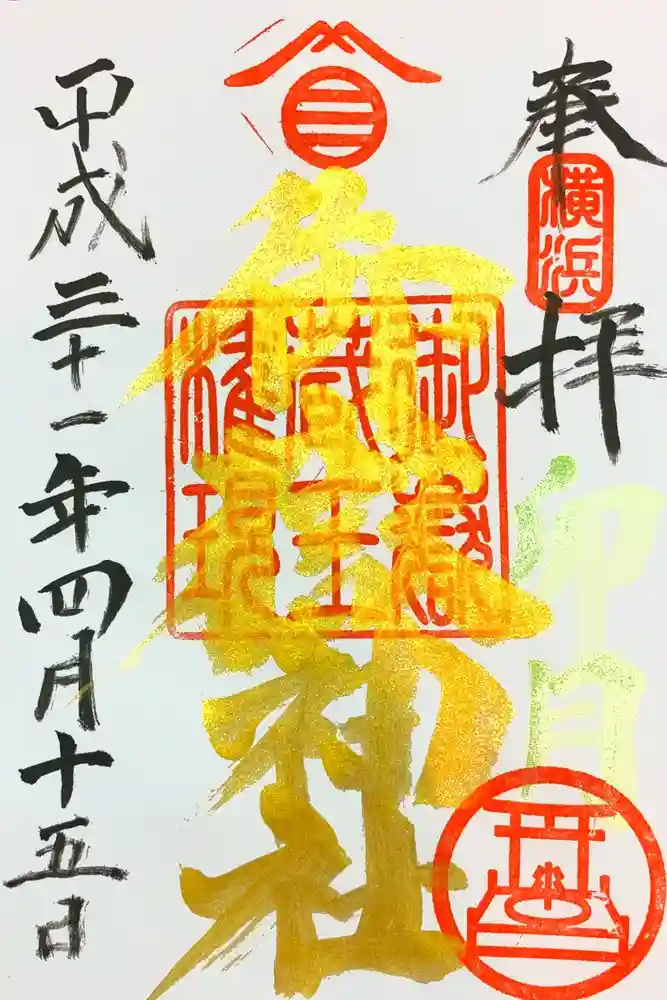 奉拝
横浜
卯月
御嶽神社
御嶽
蔵王
権現
平成三十一年四月十五日